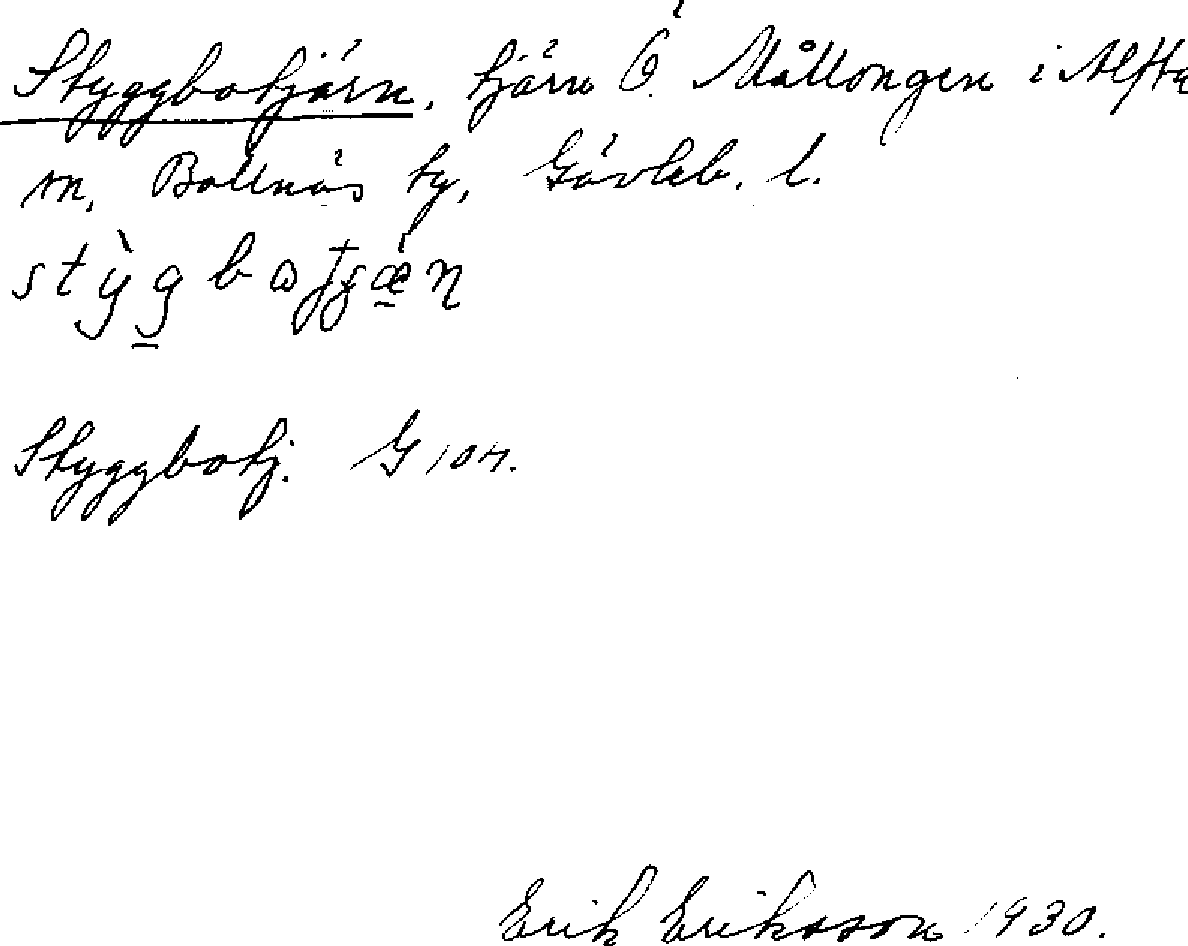 Styggbotjärn, tjärn Ö. Mållongen i Alfta
sn, Bollnäs ty, Gävleb. l.
Styggbotj. G 104.
Erik Eriksson 1930.